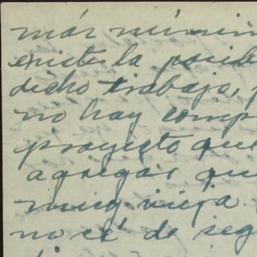 más mínim
existe la posib
dicho trabajo, p
no hay comp
proyecto que
agregar que
muy vieja
no sé de seg